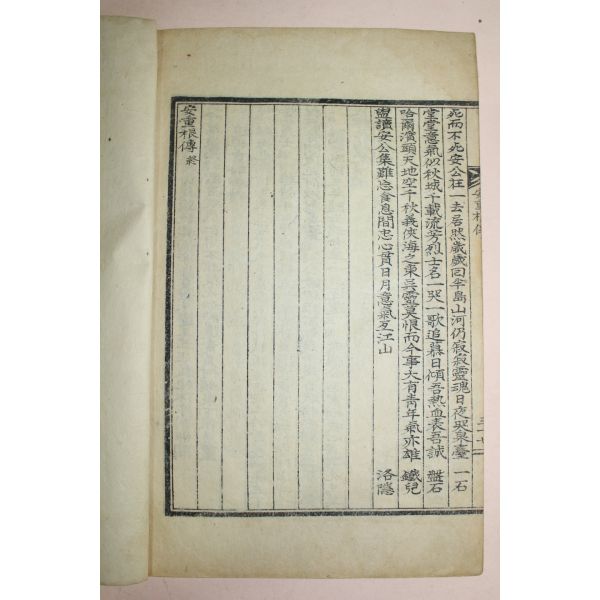 安重根傳
死而不死安公在一去居然歲歲回半島山河仍寂寂靈魂日夜哭泉臺 一石
堂堂意氣似秋城千載流芳烈士名一哭一歌追慕日傾吾熱血表吾誠 盤石
哈爾濱頭天地空千秋義俠海之東英靈莫恨而今事大有靑年氣亦雄 鐵兒
盥讀安公集難忘食息間忠心貫日月意氣亙江山 洛隱
安重根傳 終